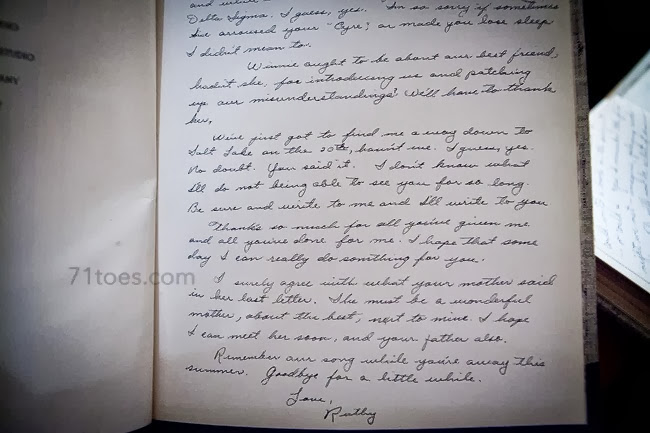 and
Delta Sigma. I guess, yes. I'm so sorry if sometimes
I've aroused your "Cyre," or made you lose sleep
I didn't mean to.
Winnie ought to be about our best friend,
hadn't she, for introducing us and patching
up our misunderstandings? We'll have to thank
her.
We've just got to find me a way down to
Salt Lake on the 20th, haven't we. I guess, yes.
No doubt. You said it. I don't know what
I'll do not being able to see you for so long.
Be sure and write to me and I'll write to you
Thanks so much for all you've given me
and all you've done for me. I hope that some
day I can really do somthing for you.
I surely agree with what your mother said
in her last letter. She must be a wonderful
mother, about the best, next to mine. I hope
I can meet her soon, and your father also.
Remember our song while you're away this
summer. Goodbye for a little while.
Love,
Ruthy
STUDIO
71toes.com